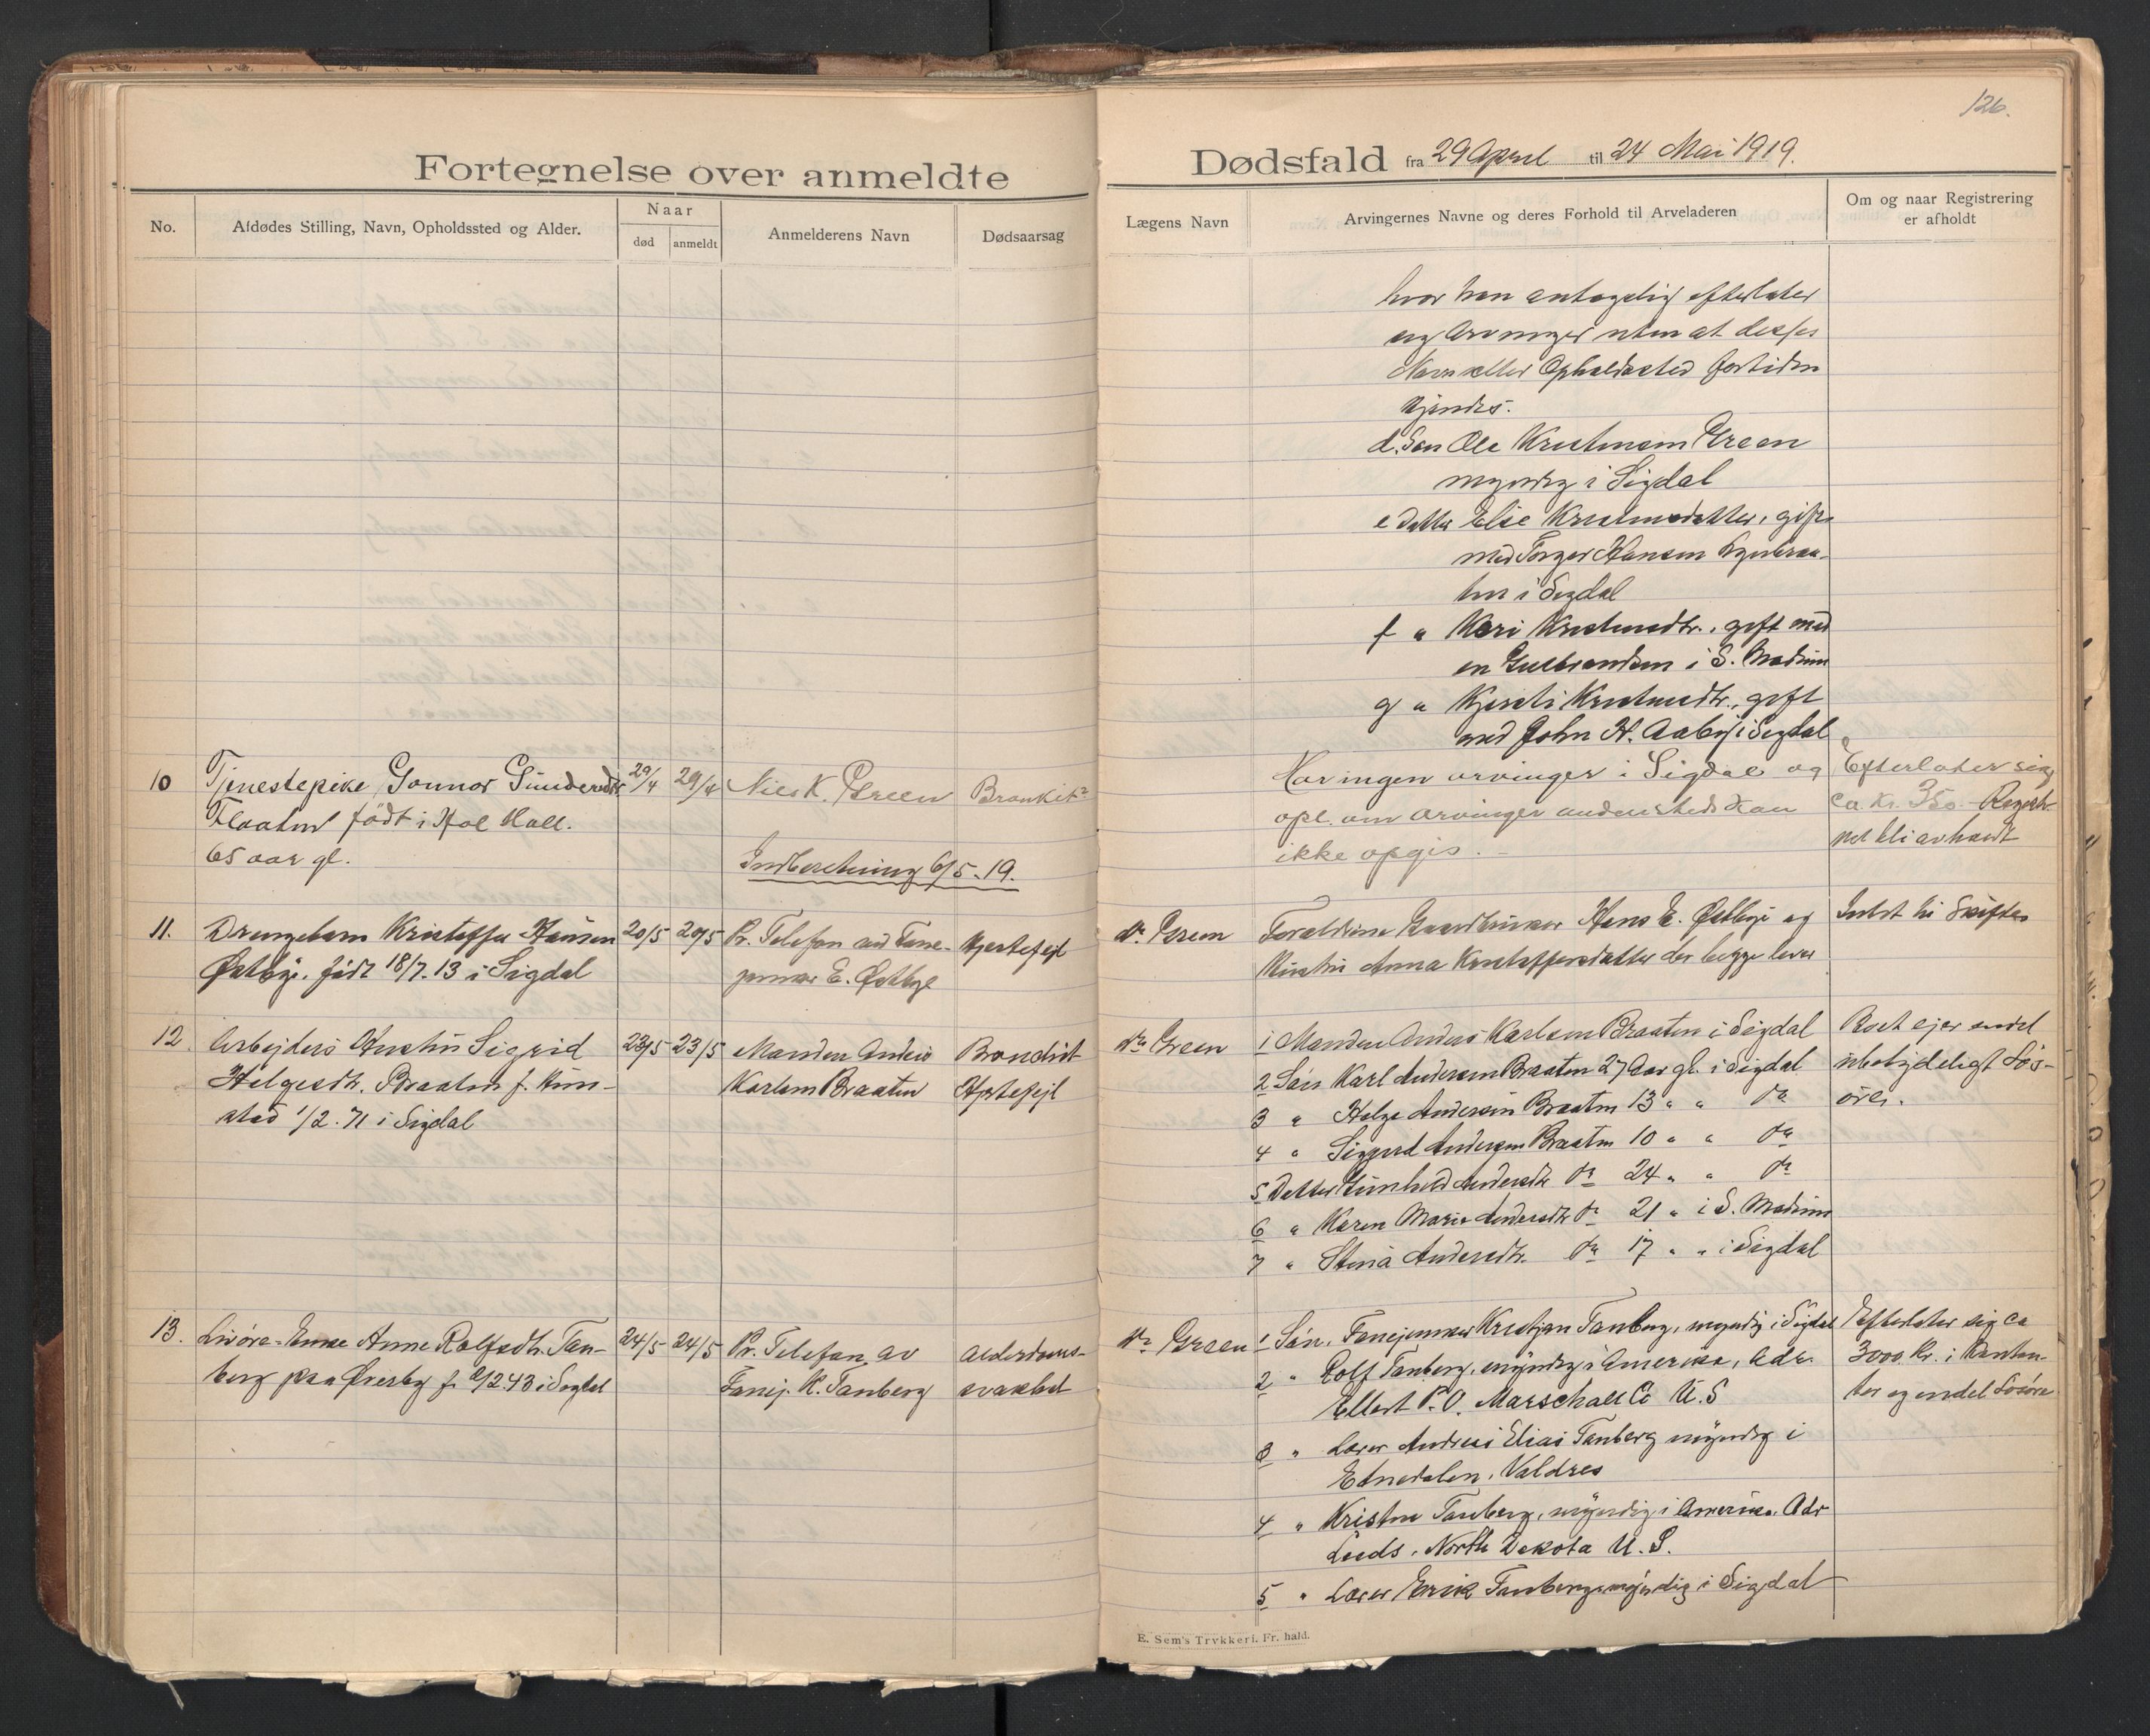 126.
Fortegnelse over anmeldte
Dødsfald fra 29 April til 24 Mai 1919.
No.
Afdødes Stilling, Navn, Opholdssted og Alder.
Naar
død
anmeldt
Anmelderens Navn
Dødsaarsag
Lægens Navn
Arvingernes Navne og deres Forhold til Arveladeren
Om og naar Registrering
er afholdt
hvor han antagelig efterlater
sig Arvinger uten at disses
Navn eller Opholdssted fortiden
kjendes.
d. Søn Ole Kristensen Green
myndig i Sigdal
e Datter Else Kristensdatter, gift
med Torger Hansen
i Sigdal
f " Kari Kristensdtr., gift med
en Gulbrandsen i S. Modum
g " Kjersti Kristensdtr., gift
med John H. Aaby i Sigdal
10
Tjenestepike Gonnor Gundersdtr.
Flaaten født i Hol Hall.
65 aar gl.
29/4
29/4
Niels K. Green
Bronkit
Indberetning 6/5. 19.
Har ingen arvinger i Sigdal og
opl. om arvinger andensteds kan
ikke opgis.
Efterlater sig
ca. kr. 350.- Registr.
vil bli avholdt
11.
Drengebarn Kristoffer Hansen
Østbye, født 18/7. 13 i Sigdal
20/5
20/5
Pr. Telefon av Fane-
junker E. Østbye
Hjertefejl
Dr. Green
Forældrene Gaardbruker Hans E. Østbye og
Hustru Anna Kristoffersdatter der begge lever
Intet til Skifte
12
Arbejders Hustru Sigrid
Helgesdtr. Braaten f.
1/2. 71 i Sigdal
23/5
23/5
Manden Anders
Karlsen Braaten
Brondict
Hjertefejl
Dr. Green
1 Manden Anders Karlsen Braaten i Sigdal
2 Søn Karl Andersen Braaten 27 Aar gl. i Sigdal
3 " Helge Andersen Braaten 13 " " do
4 " Sigurd Andersen Braaten 10 " " do
5 Datter Gunhild Andersdtr. do 24 " " do
6 " Karen Marie Andersdtr. do 21 " i S. Modum
7 " Stina Andersdtr. do 17 " " i Sigdal
Boet ejer endel
ubetydeligt Løs-
øre.
13.
Livøre-Enke Anne Rolfsdtr. Tan-
berg paa Øverby f. 2/12.43 i Sigdal
24/5
24/5
Pr. Telefon av
Fanej. K. Tanberg
Alderdoms-
svakhet
Dr. Green
1 Søn, Fanejunker Kristjan Tanberg, myndig i Sigdal
2 " Rolf Tanberg, myndig i Amerika, Adr.
Ellert P.O. Marschall Co U.S
3 " Lærer Andreas Elias Tanberg myndig i
Etnedalen, Valdres
4 " Kristen Tanberg, myndig i Amerika. Adr
Leeds, North Dakota U.S.
5 " Lærer Erik Tanberg, myndig i Sigdal
Efterlater sig ca
3000 Kr. i Kontan-
ter og endel Løsøre
E. Sem's Trykkeri. Fr. hald.